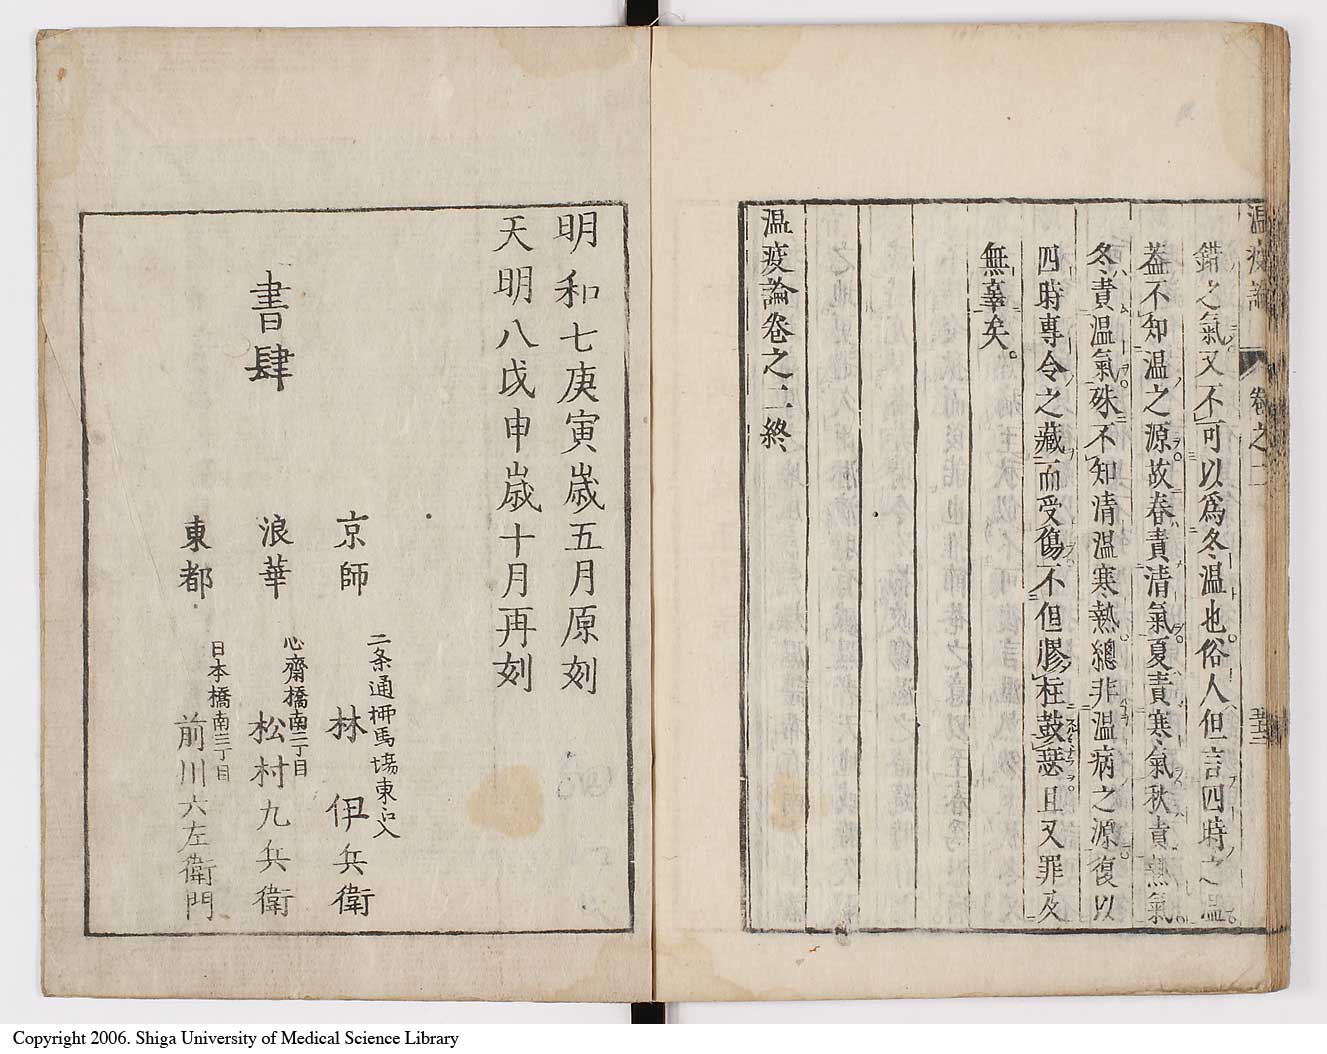 温疫論 卷之二
錯之氣又不可以爲冬温也俗人但言四時之温
蓋不知温之源故春責清氣夏責寒氣秋責熱氣
冬責温氣殊不知清温寒熱總非温病之源復以
四時專令之藏而受傷不但膠柱鼓瑟且又罪及
無辜矣。
温疫論卷之二終
明和七庚寅歲五月原刻
天明八戊申歲十月再刻
書肆
京師 二条通柳馬場東江入 林伊兵衛
浪華 心齋橋南二丁目 松村九兵衛
東都 日本橋南三丁目 前川六左衛門
Copyright 2006. Shiga University of Medical Science Library